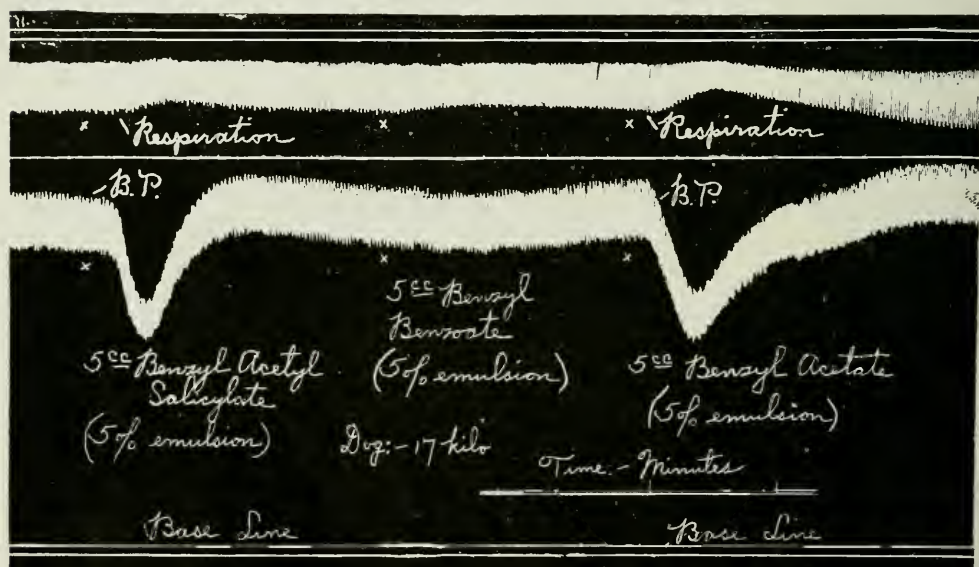 x Respiration x x Respiration
B.P. B.P.
x x x
5cc Benzyl Acetyl
Salicylate
(5% emulsion)
5cc Benzyl
Benzoate
(5% emulsion)
5cc Benzyl Acetate
(5% emulsion)
Dog:- 17 kilo
Time:- Minutes
Base Line Base Line